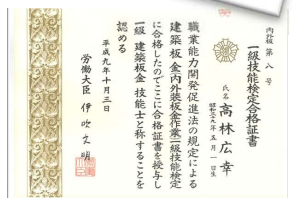 内外板 第 八 号
一級技能検定合格証書
氏名 高林広幸
昭和三九年五月一日生
職業能力開発促進法の規定による
建築板金(内外装板金作業)一級技能検定
に合格したのでここに合格証書を授与し
一級 建築板金 技能士と称することを
認める
平成九年十月三日
労働大臣 伊吹文明